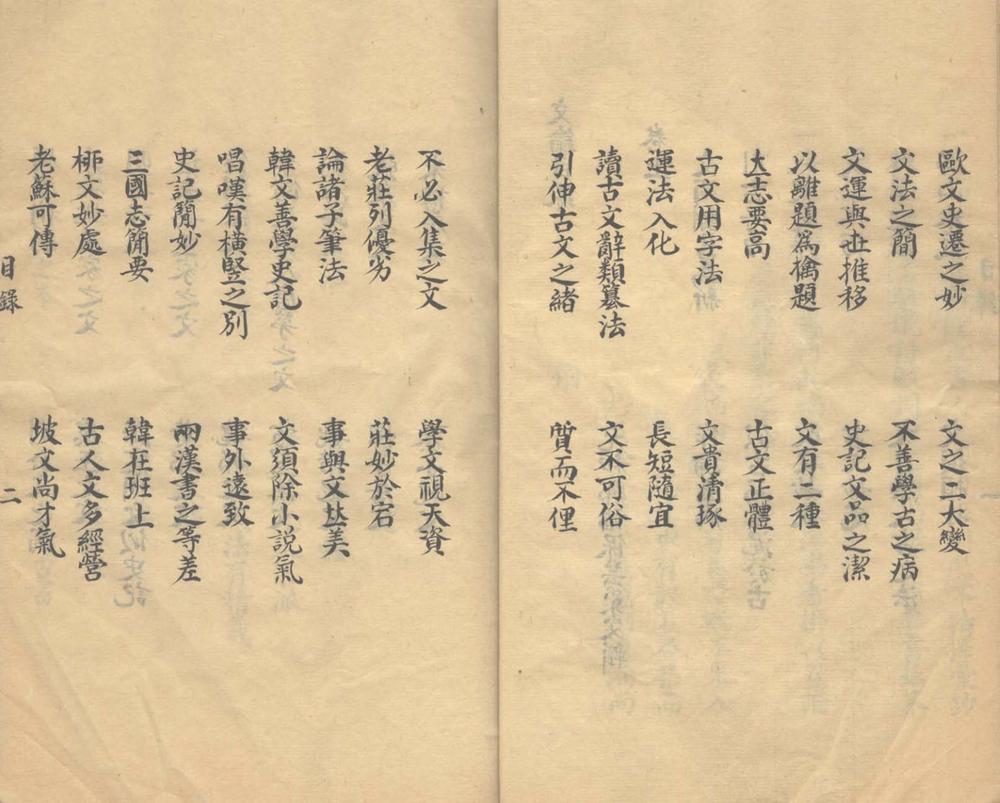 歐文史遷之妙
文之二大變
文法之簡
不善學古之病
文運與世推移
史記文品之潔
以離題爲擒題
文有二種
大志要高
古文正體
古文用字法
文貴清琢
運法入化
長短隨宜
讀古文辭類纂法
文不可俗
引伸古文之緒
質而不俚
不必入集之文
學文視天資
老莊列優劣
莊妙於宕
論諸子筆法
事與文𠀤美
韓文善學史記
文須除小說氣
唱嘆有橫豎之別
事外遠致
史記簡妙
兩漢書之等差
三國志簡要
韓在班上
柳文妙處
古人文多經營
老蘇可傳
坡文尚才氣
目錄
二